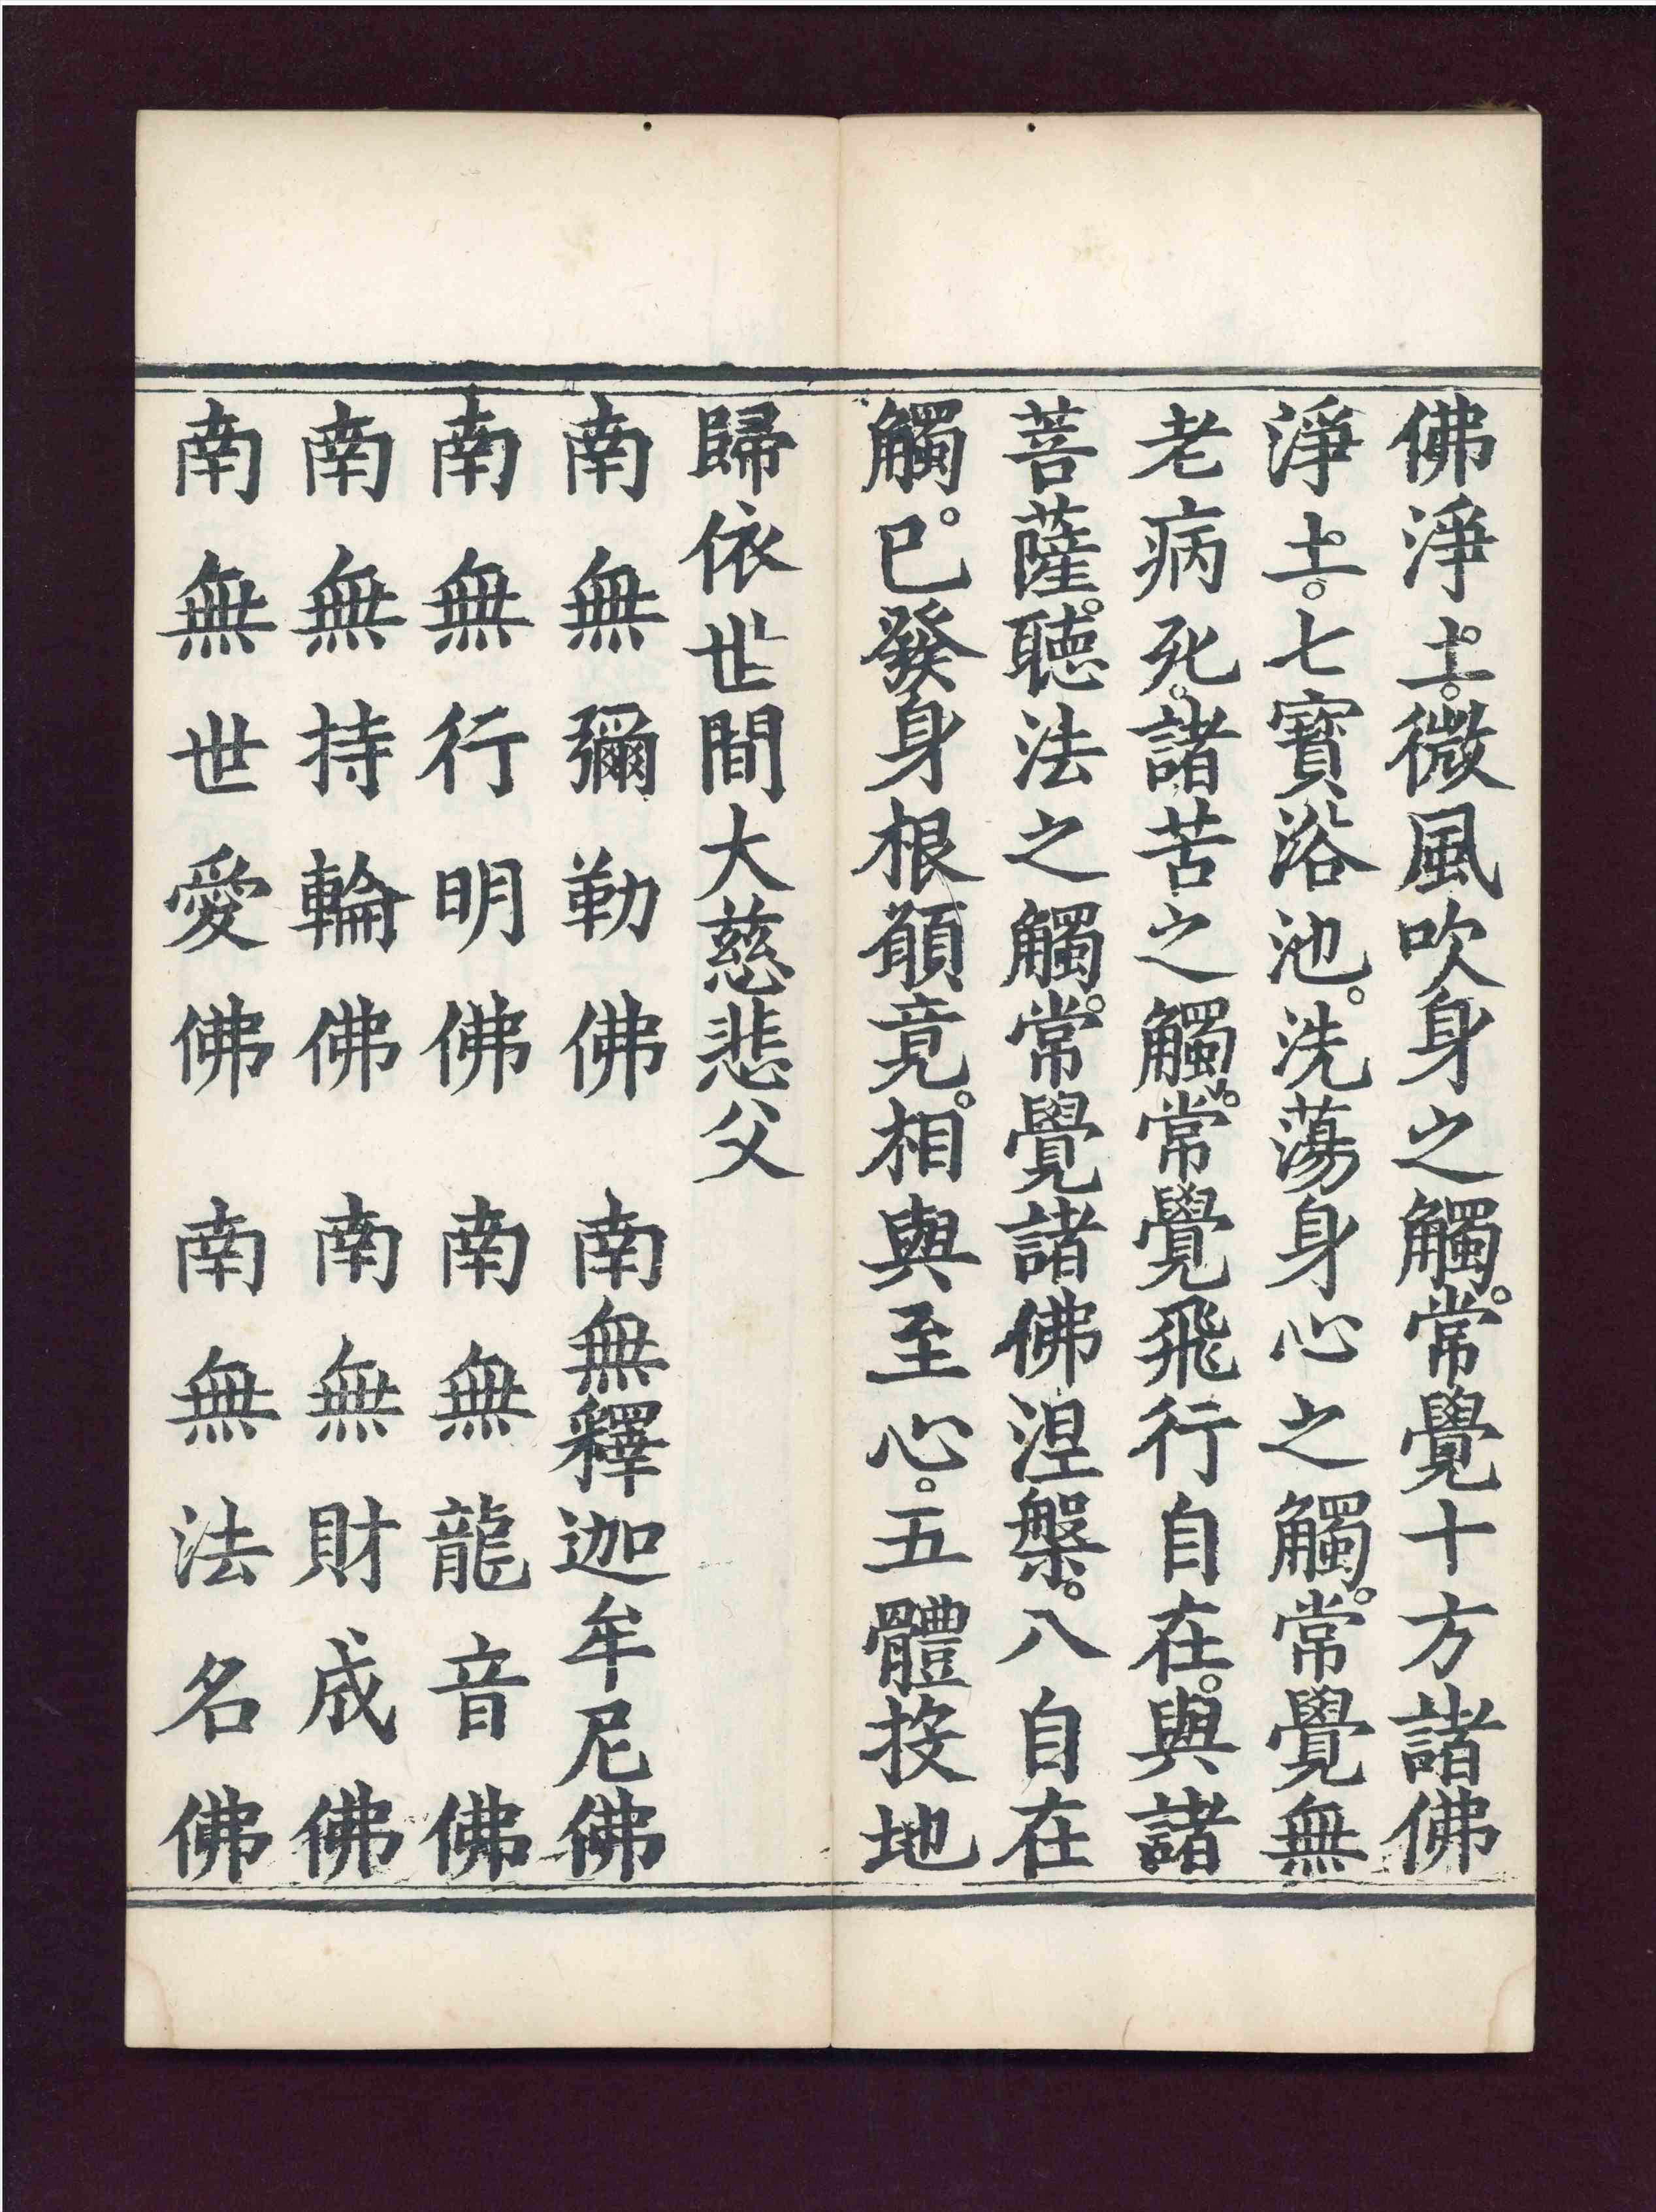 佛淨土。微風吹身之觸。常覺十方諸佛
淨土。七寶浴池。洗蕩身心之觸。常覺無
老病死。諸苦之觸。常覺飛行自在。與諸
菩薩。聽法之觸。常覺諸佛涅槃。八自在
觸。已發身根願竟。相與至心。五體投地
歸依世間大慈悲父
南無彌勒佛　南無釋迦牟尼佛
南無行明佛　南無龍音佛
南無持輪佛　南無財成佛
南無世愛佛　南無法名佛